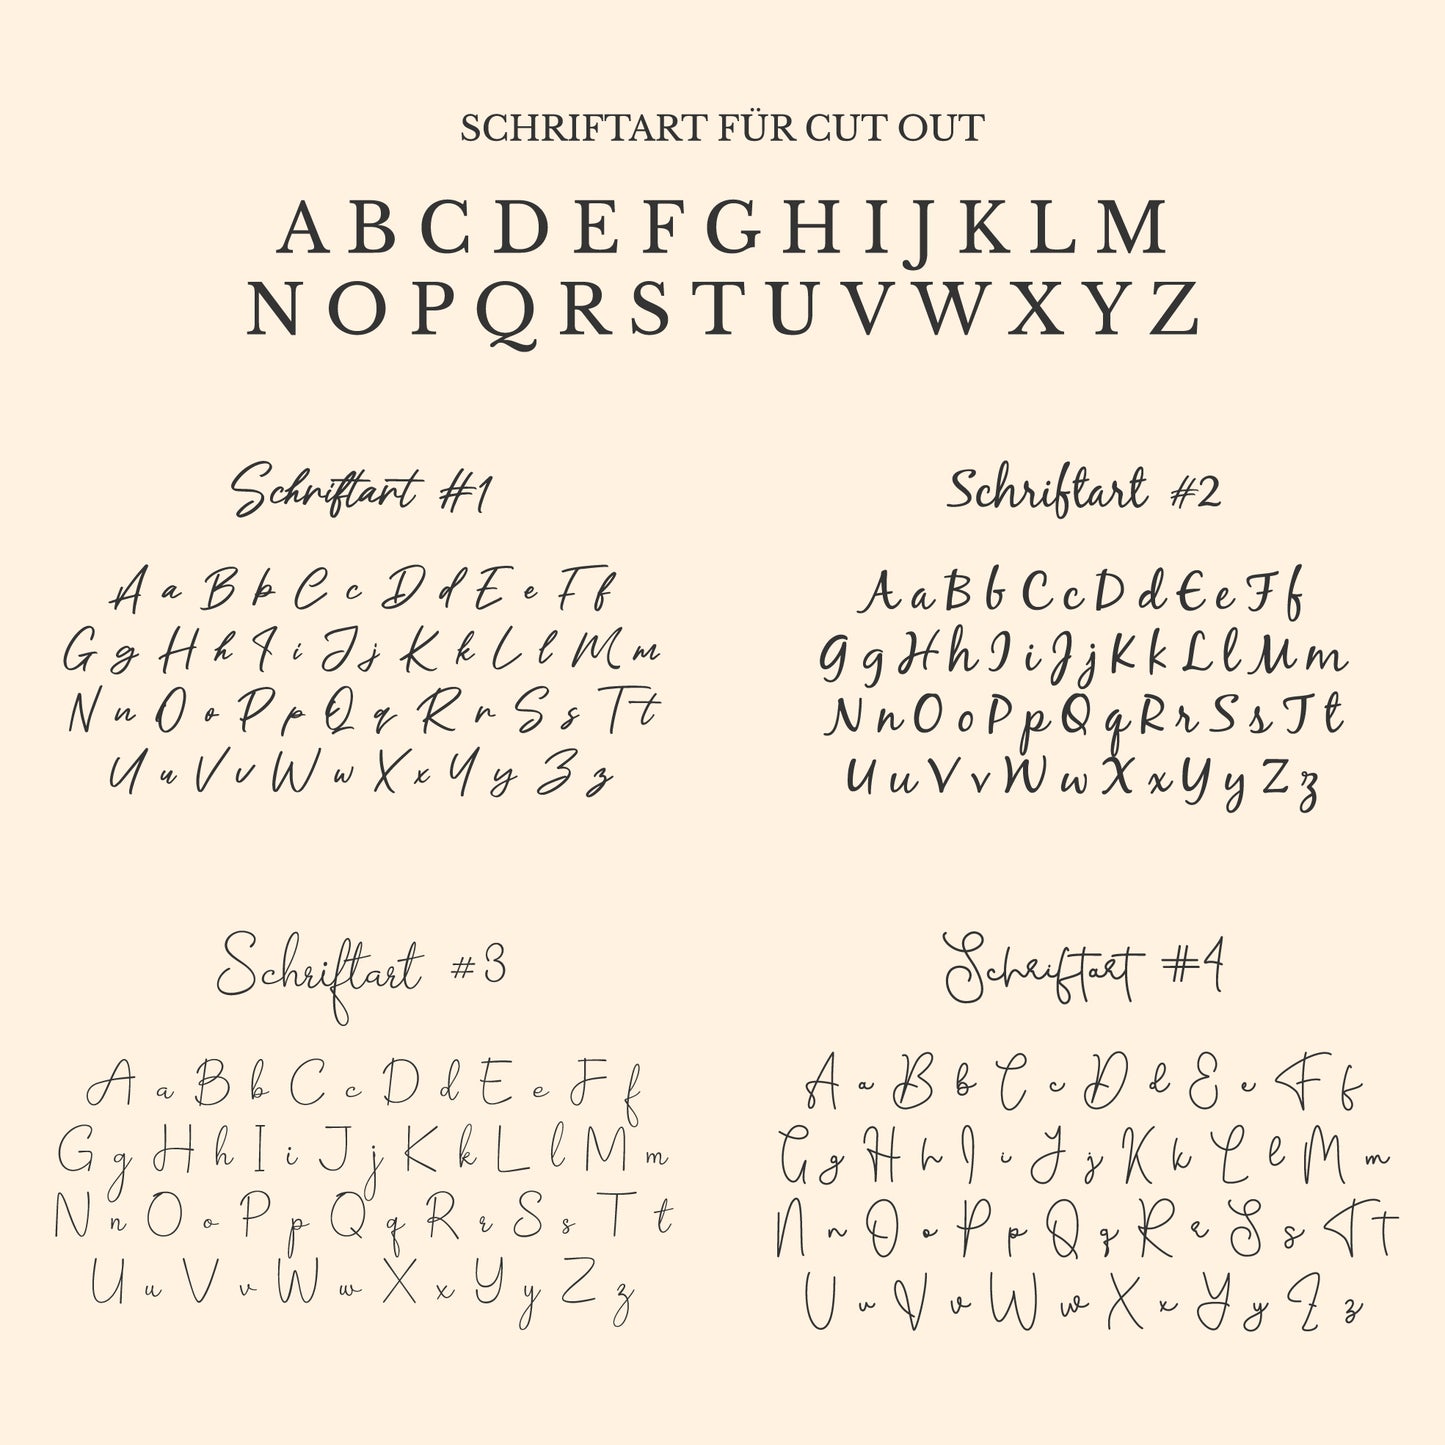 SCHRIFTART FÜR CUT OUT
A B C D E F G H I J K L M
N O P Q R S T U V W X Y Z
Schriftart #1
A a B b C c D d E e F f
G g H h I i J j K k L l M m
N n O o P p Q q R r S s T t
U u V v W w X x Y y Z z
Schriftart #2
A a B b C c D d E e F f
G g H h I i J j K k L l M m
N n O o P p Q q R r S s T t
U u V v W w X x Y y Z z
Schriftart #3
A a B b C c D d E e F f
G g H h I i J j K k L l M m
N n O o P p Q q R r S s T t
U u V v W w X x Y y Z z
Schriftart #4
A a B b C c D d E e F f
G g H h I i J j K k L l M m
N n O o P p Q q R r S s T t
U u V v W w X x Y y Z z